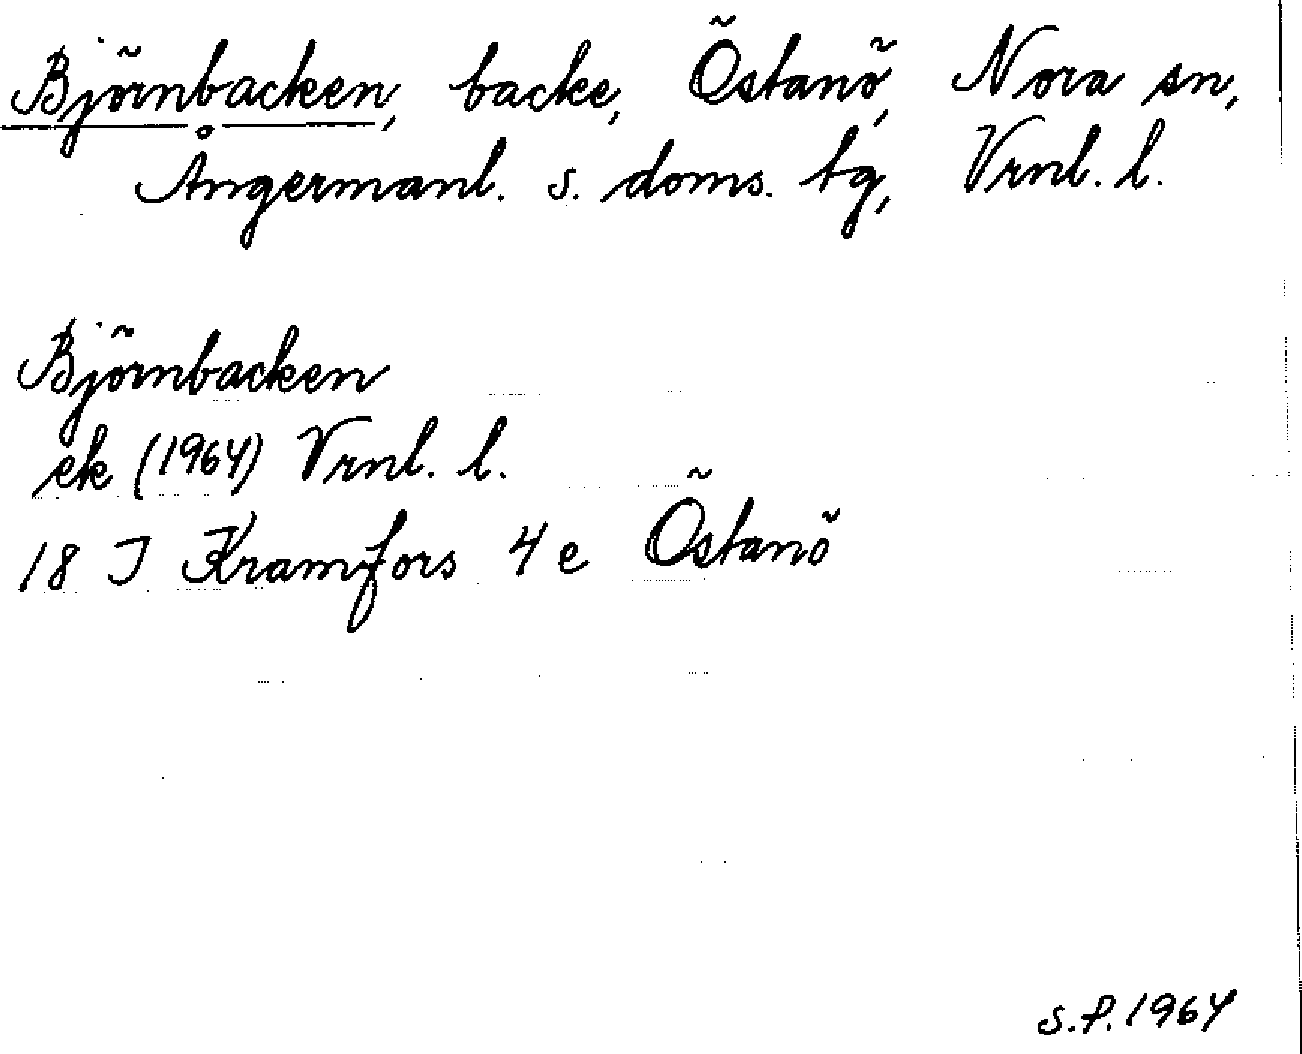 Björnbacken, backe, Östanö, Nora sn,
Ångermanl. s. doms. tg, Vrnl. l.
Björnbacken
ek (1964) Vrnl. l.
18 I Kramfors 4 e Östanö
S.P. 1964